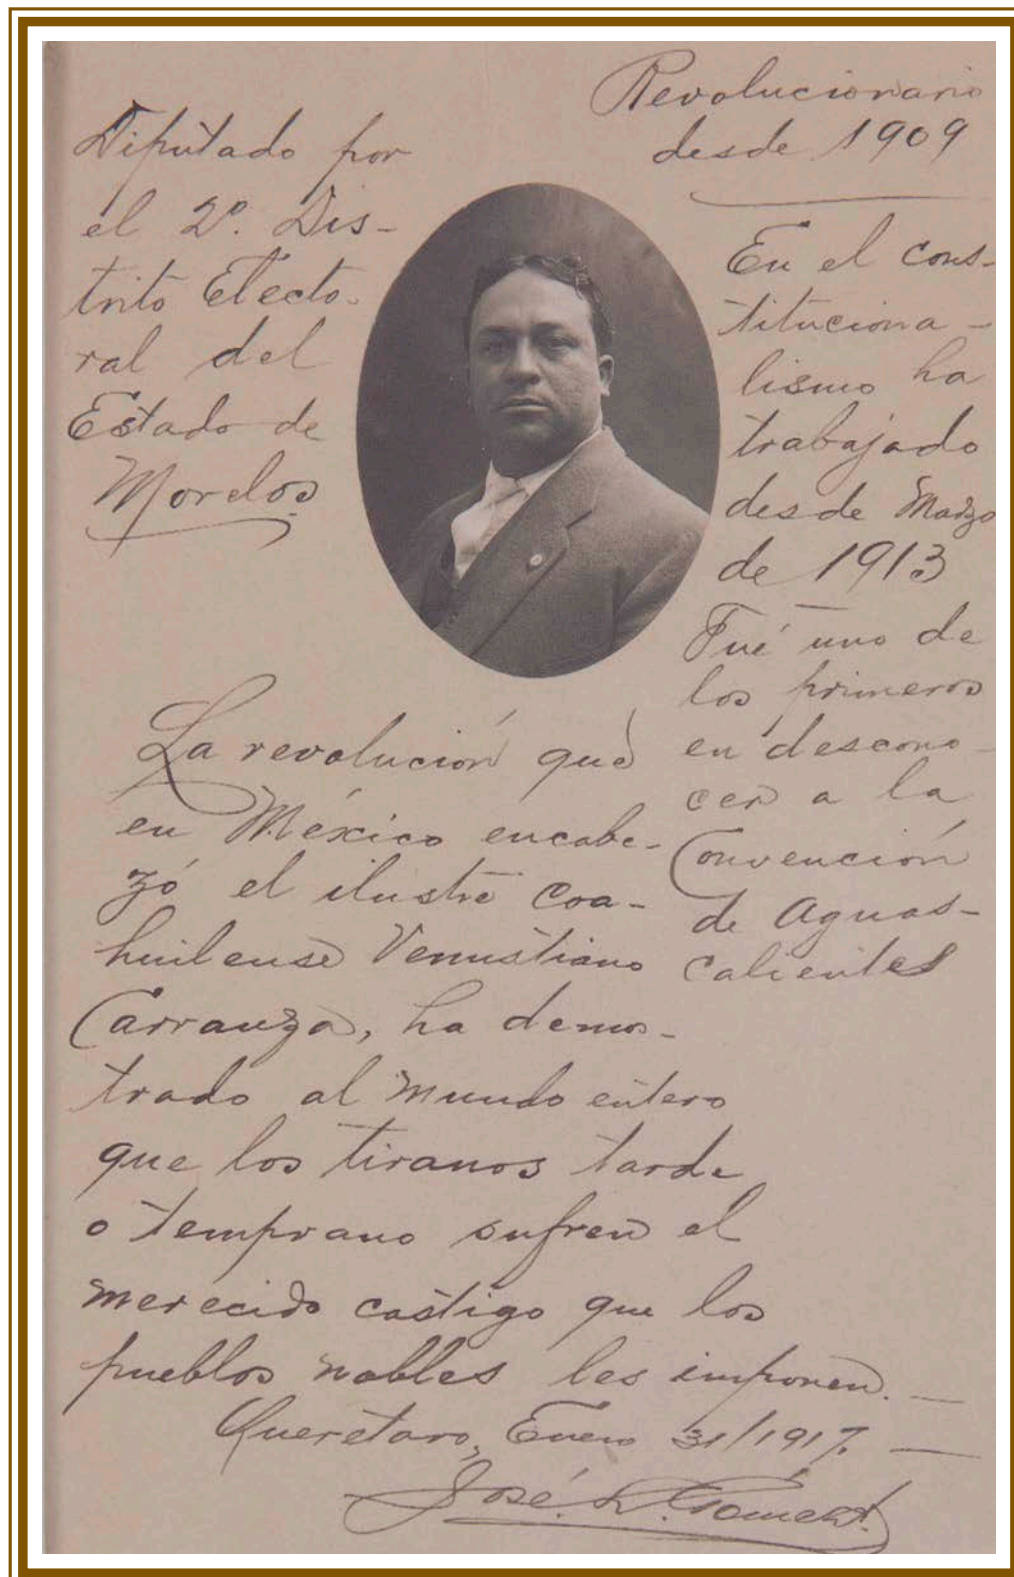 Diputado por
el 2º. Dis-
trito Electo-
ral del
Estado de
Morelos
Revolucionario
desde 1909
En el cons-
tituciona-
lismo ha
trabajado
desde Marzo
de 1913
Fué uno de
los primeros
en descono-
cer a la
Convención
de Aguas-
calientes
La revolución que
en México encabe-
zó el ilustre coa-
huilense Venustiano
Carranza, ha demos-
trado al mundo entero
que los tiranos tarde
o temprano sufren el
merecido castigo que los
pueblos nobles les imponen.—
Querétaro, Enero 31/1917.—
José L. Gómez